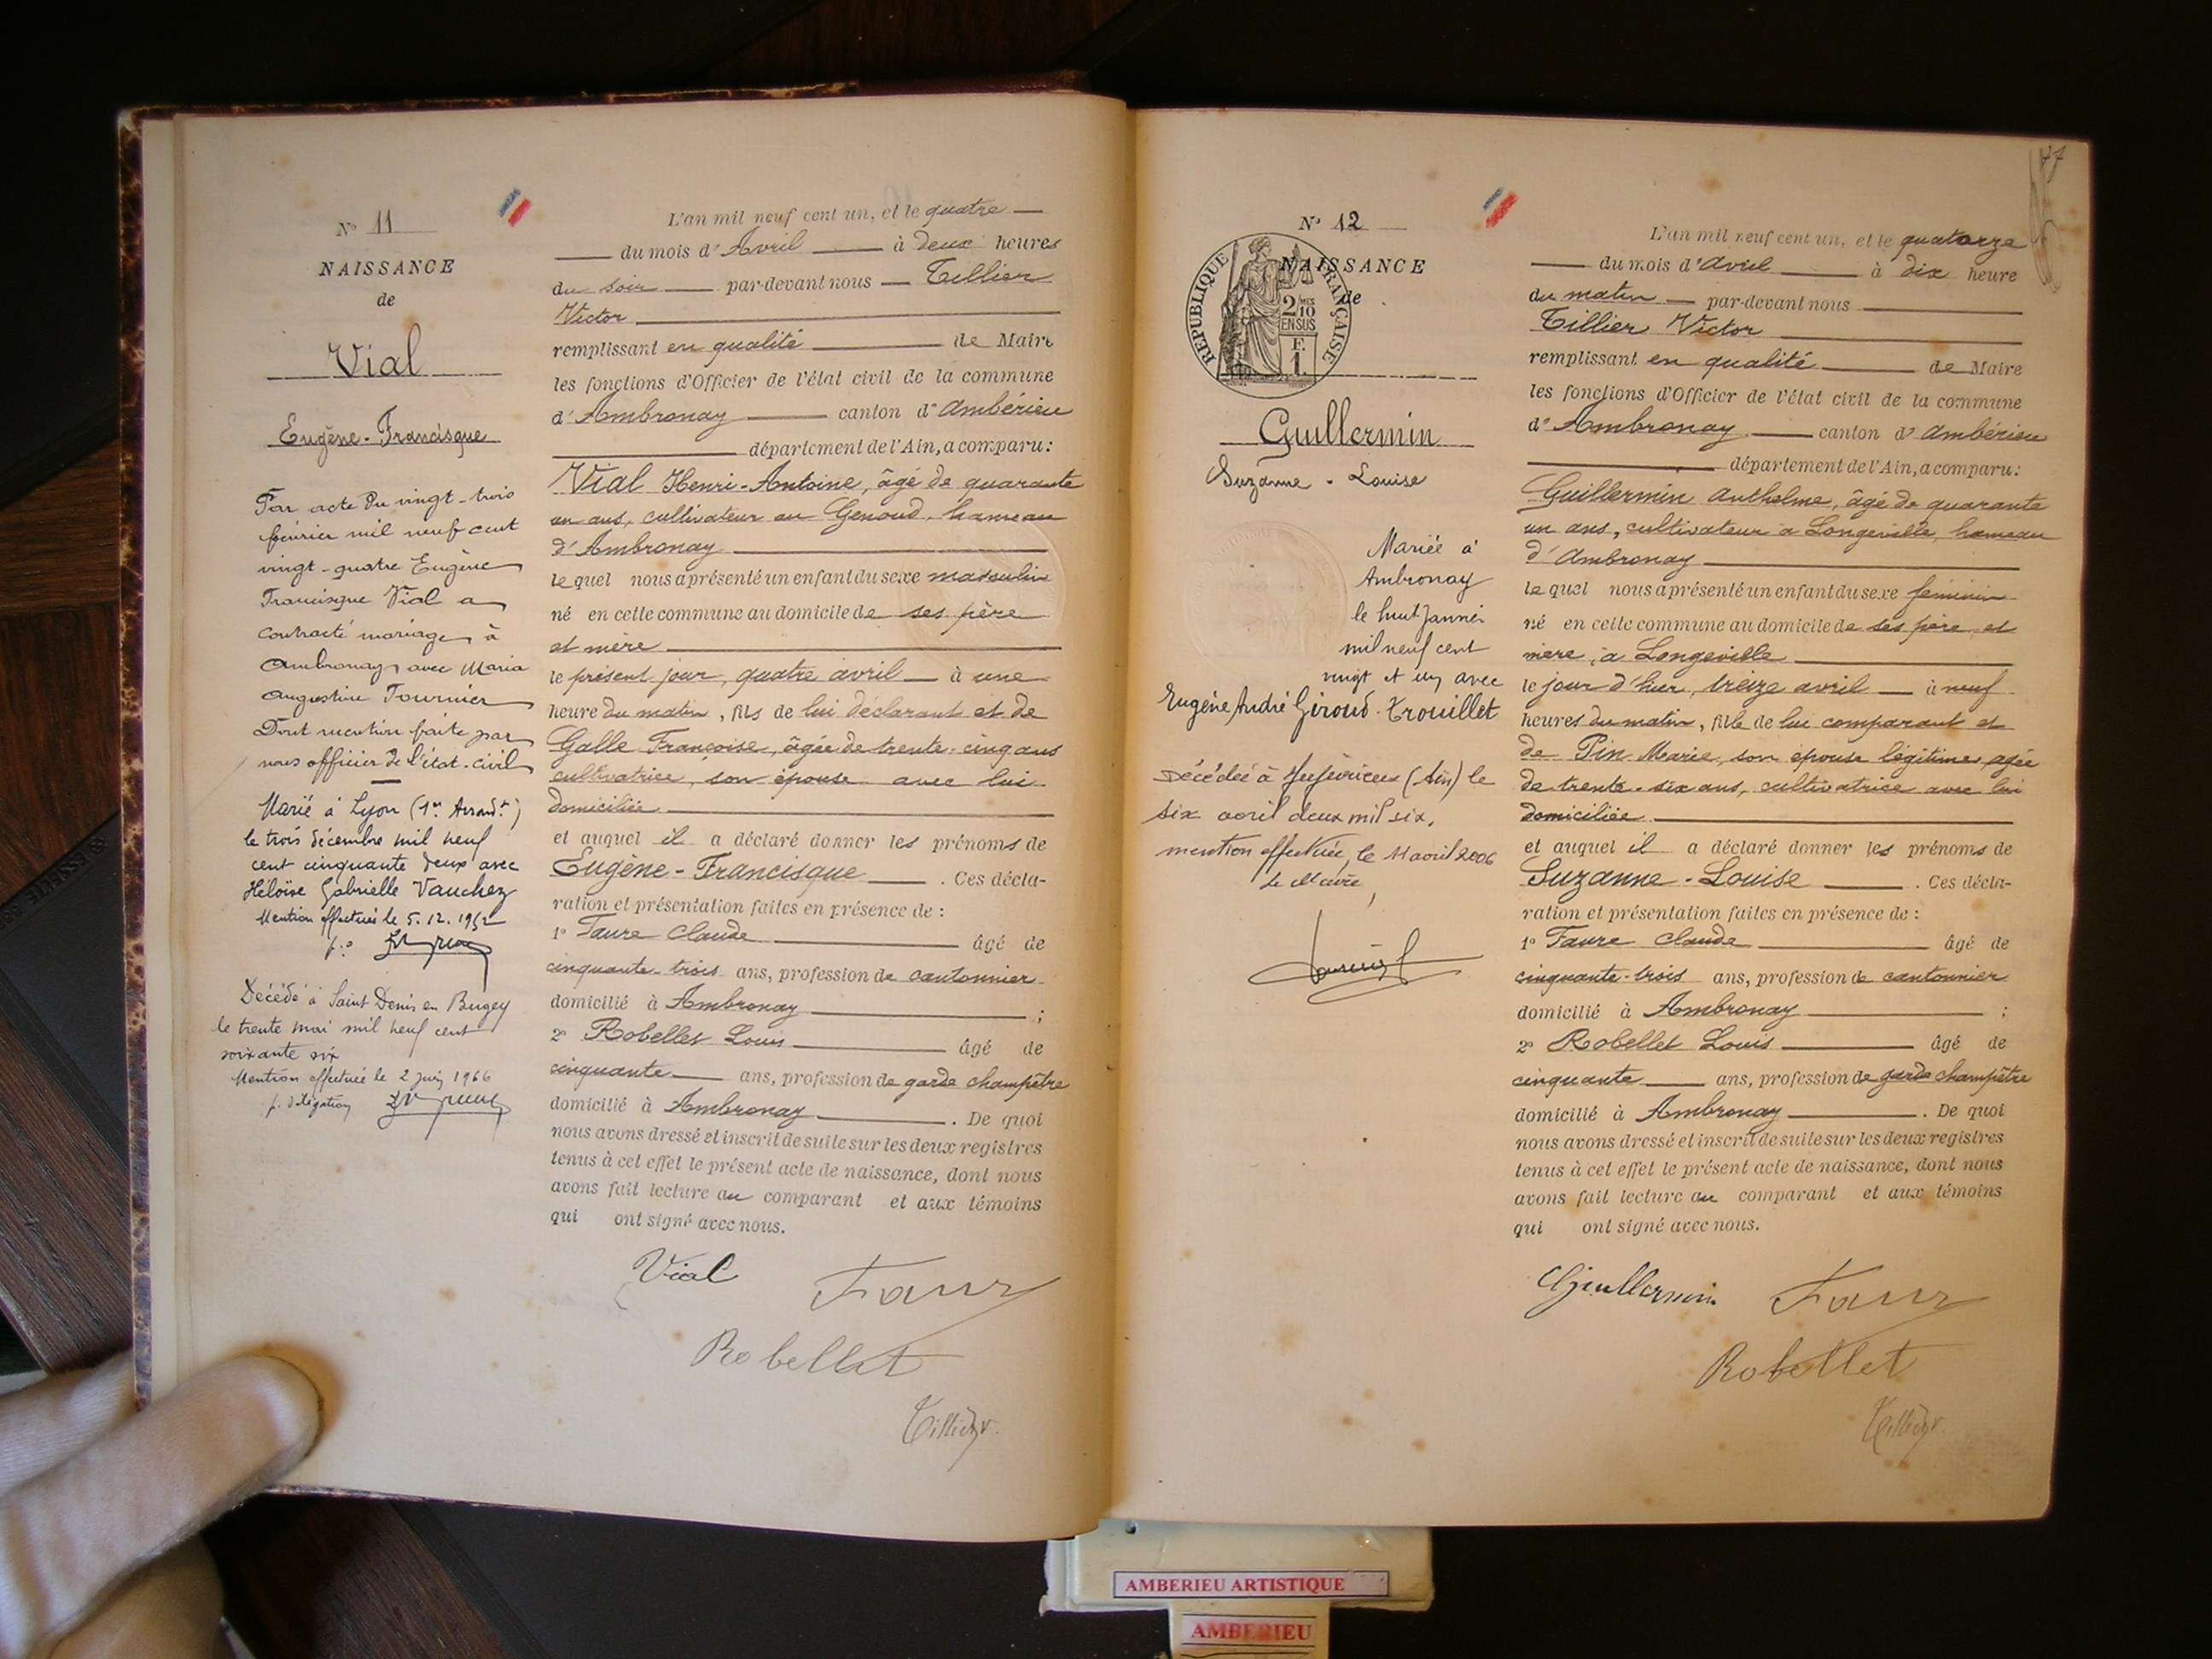 N° 11
NAISSANCE
de
Vial
Eugène-Francisque
Par acte du vingt-trois
février mil neuf cent
vingt-quatre Eugène
Francisque Vial a
contracté mariage à
Ambronay avec Maria
Augustine Tournier
Dont mention faite par
nous officier de l'état-civil
Marié à Lyon (1er Arrondt)
le trois décembre mil neuf
cent cinquante deux avec
Héloïse Gabrielle Vauchez
Mention effectuée le 5.12.1952
Décédé à Saint Denis en Bugey
le trente mai mil neuf cent
soixante six
Mention effectuée le 2 juin 1966
p. délégation
L'an mil neuf cent un, et le quatre
du mois d'Avril à deux heures
du soir par-devant nous Tillier
Victor
remplissant en qualité de Maire
les fonctions d'Officier de l'état civil de la commune
d'Ambronay canton d'Ambérieu
département de l'Ain, a comparu:
Vial Henri-Antoine, âgé de quarante
un ans, cultivateur au Genoud, hameau
d'Ambronay
lequel nous a présenté un enfant du sexe masculin
né en cette commune au domicile de ses père
et mère
le présent jour, quatre avril à une
heure du matin, fils de lui déclarant et de
Galle Françoise, âgée de trente-cinq ans
cultivatrice, son épouse avec lui
domiciliée
et auquel il a déclaré donner les prénoms de
Eugène-Francisque. Ces décla-
ration et présentation faites en présence de :
1° Faure Claude âgé de
cinquante-trois ans, profession de cantonnier
domicilié à Ambronay ;
2° Robellet Louis âgé de
cinquante ans, profession de garde champêtre
domicilié à Ambronay. De quoi
nous avons dressé et inscrit de suite sur les deux registres
tenus à cet effet le présent acte de naissance, dont nous
avons fait lecture au comparant et aux témoins
qui ont signé avec nous.
Vial Faure
Robellet
Tillier V.
N° 12
RÉPUBLIQUE FRANÇAISE
2/10
EN SUS
F.
1.
NAISSANCE
de
Guillermin
Suzanne-Louise
Mariée à
Ambronay
le huit Janvier
mil neuf cent
vingt et un avec
Eugène André Giroud-Trouillet
Décédée à Jujurieux (Ain) le
six avril deux mil six.
mention effectuée, le 11 avril 2006
Le Maire,
L'an mil neuf cent un, et le quatorze
du mois d'Avril à dix heure
du matin par-devant nous
Tillier Victor
remplissant en qualité de Maire
les fonctions d'Officier de l'état civil de la commune
d'Ambronay canton d'Ambérieu
département de l'Ain, a comparu:
Guillermin Anthelme, âgé de quarante
un ans, cultivateur à Longeville, hameau
d'Ambronay
lequel nous a présenté un enfant du sexe féminin
né en cette commune au domicile de ses père et
mère, à Longeville
le jour d'hier, treize avril à neuf
heures du matin, fille de lui comparant et
de Pin Marie, son épouse légitime, agée
de trente-six ans, cultivatrice avec lui
domiciliée
et auquel il a déclaré donner les prénoms de
Suzanne-Louise. Ces décla-
ration et présentation faites en présence de :
1° Faure Claude âgé de
cinquante-trois ans, profession de cantonnier
domicilié à Ambronay ;
2° Robellet Louis âgé de
cinquante ans, profession de garde champêtre
domicilié à Ambronay. De quoi
nous avons dressé et inscrit de suite sur les deux registres
tenus à cet effet le présent acte de naissance, dont nous
avons fait lecture au comparant et aux témoins
qui ont signé avec nous.
Guillermin Faure
Robellet
Tillier V.
AMBERIEU ARTISTIQUE
AMBERIEU